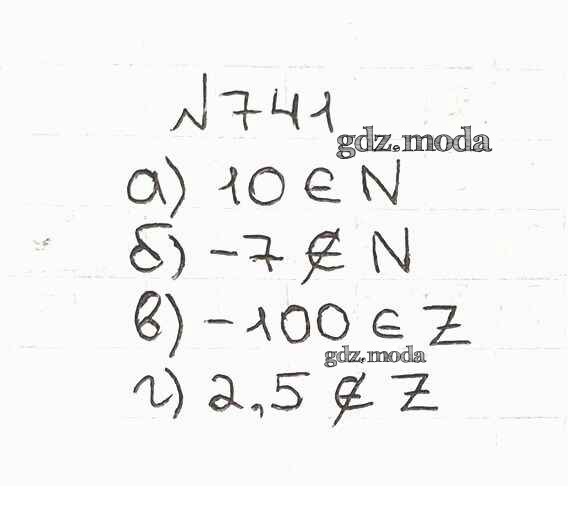 № 741
gdz.moda
а) 10 ∈ N
б) -7 ∉ N
в) -100 ∈ Z
gdz.moda
г) 2,5 ∉ Z